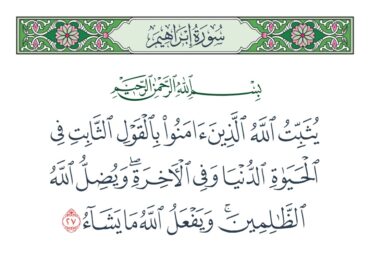 سُورَةُ إِبْرَاهِيمَ
بِسْمِ ٱللَّهِ ٱلرَّحْمَٰنِ ٱلرَّحِيمِ
يُثَبِّتُ ٱللَّهُ ٱلَّذِينَ ءَامَنُوا۟ بِٱلْقَوْلِ ٱلثَّابِتِ فِى
ٱلْحَيَوٰةِ ٱلدُّنْيَا وَفِى ٱلْـَٔاخِرَةِۖ وَيُضِلُّ ٱللَّهُ
ٱلظَّٰلِمِينَۚ وَيَفْعَلُ ٱللَّهُ مَا يَشَآءُ ٢٧